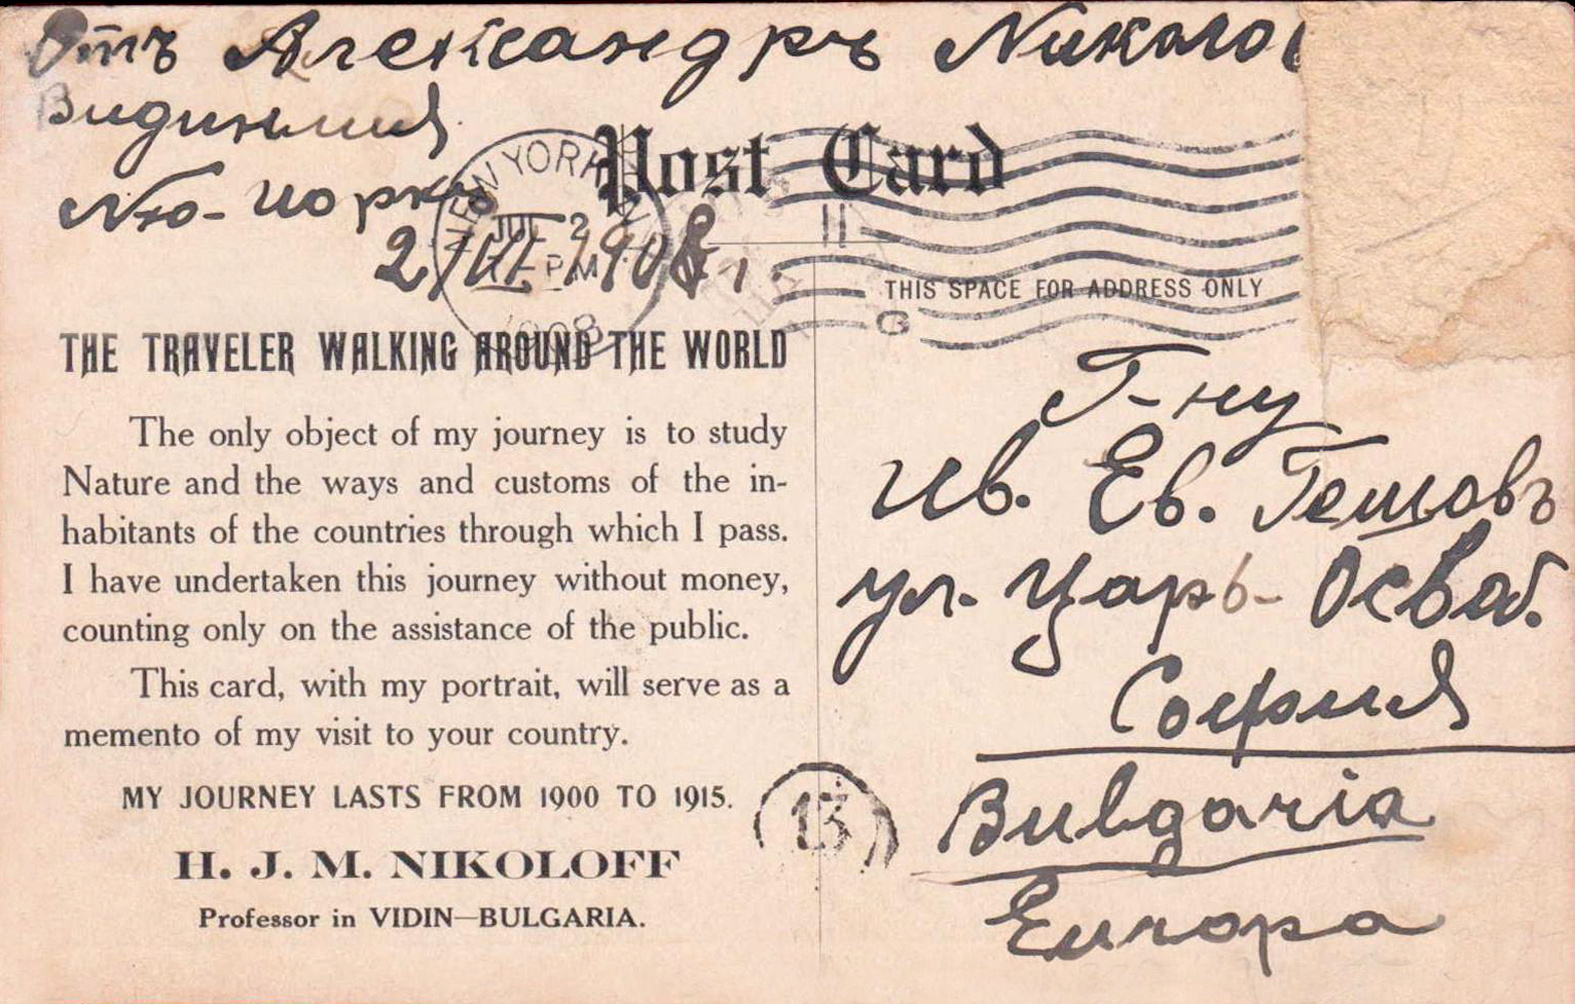 Отъ Александръ Николо
Видинлия
Ню-Иоркъ
2/VII 1908
NEW YORK, N.Y.
JUL 2
PM
1908
Post Card
THIS SPACE FOR ADDRESS ONLY
G
THE TRAVELER WALKING AROUND THE WORLD
The only object of my journey is to study
Nature and the ways and customs of the in-
habitants of the countries through which I pass.
I have undertaken this journey without money,
counting only on the assistance of the public.
This card, with my portrait, will serve as a
memento of my visit to your country.
MY JOURNEY LASTS FROM 1900 TO 1915.
H. J. M. NIKOLOFF
Professor in VIDIN—BULGARIA.
13
Г-ну
Ив. Ев. Гешовъ
ул. Царь-Освоб.
София
Bulgaria
Europa